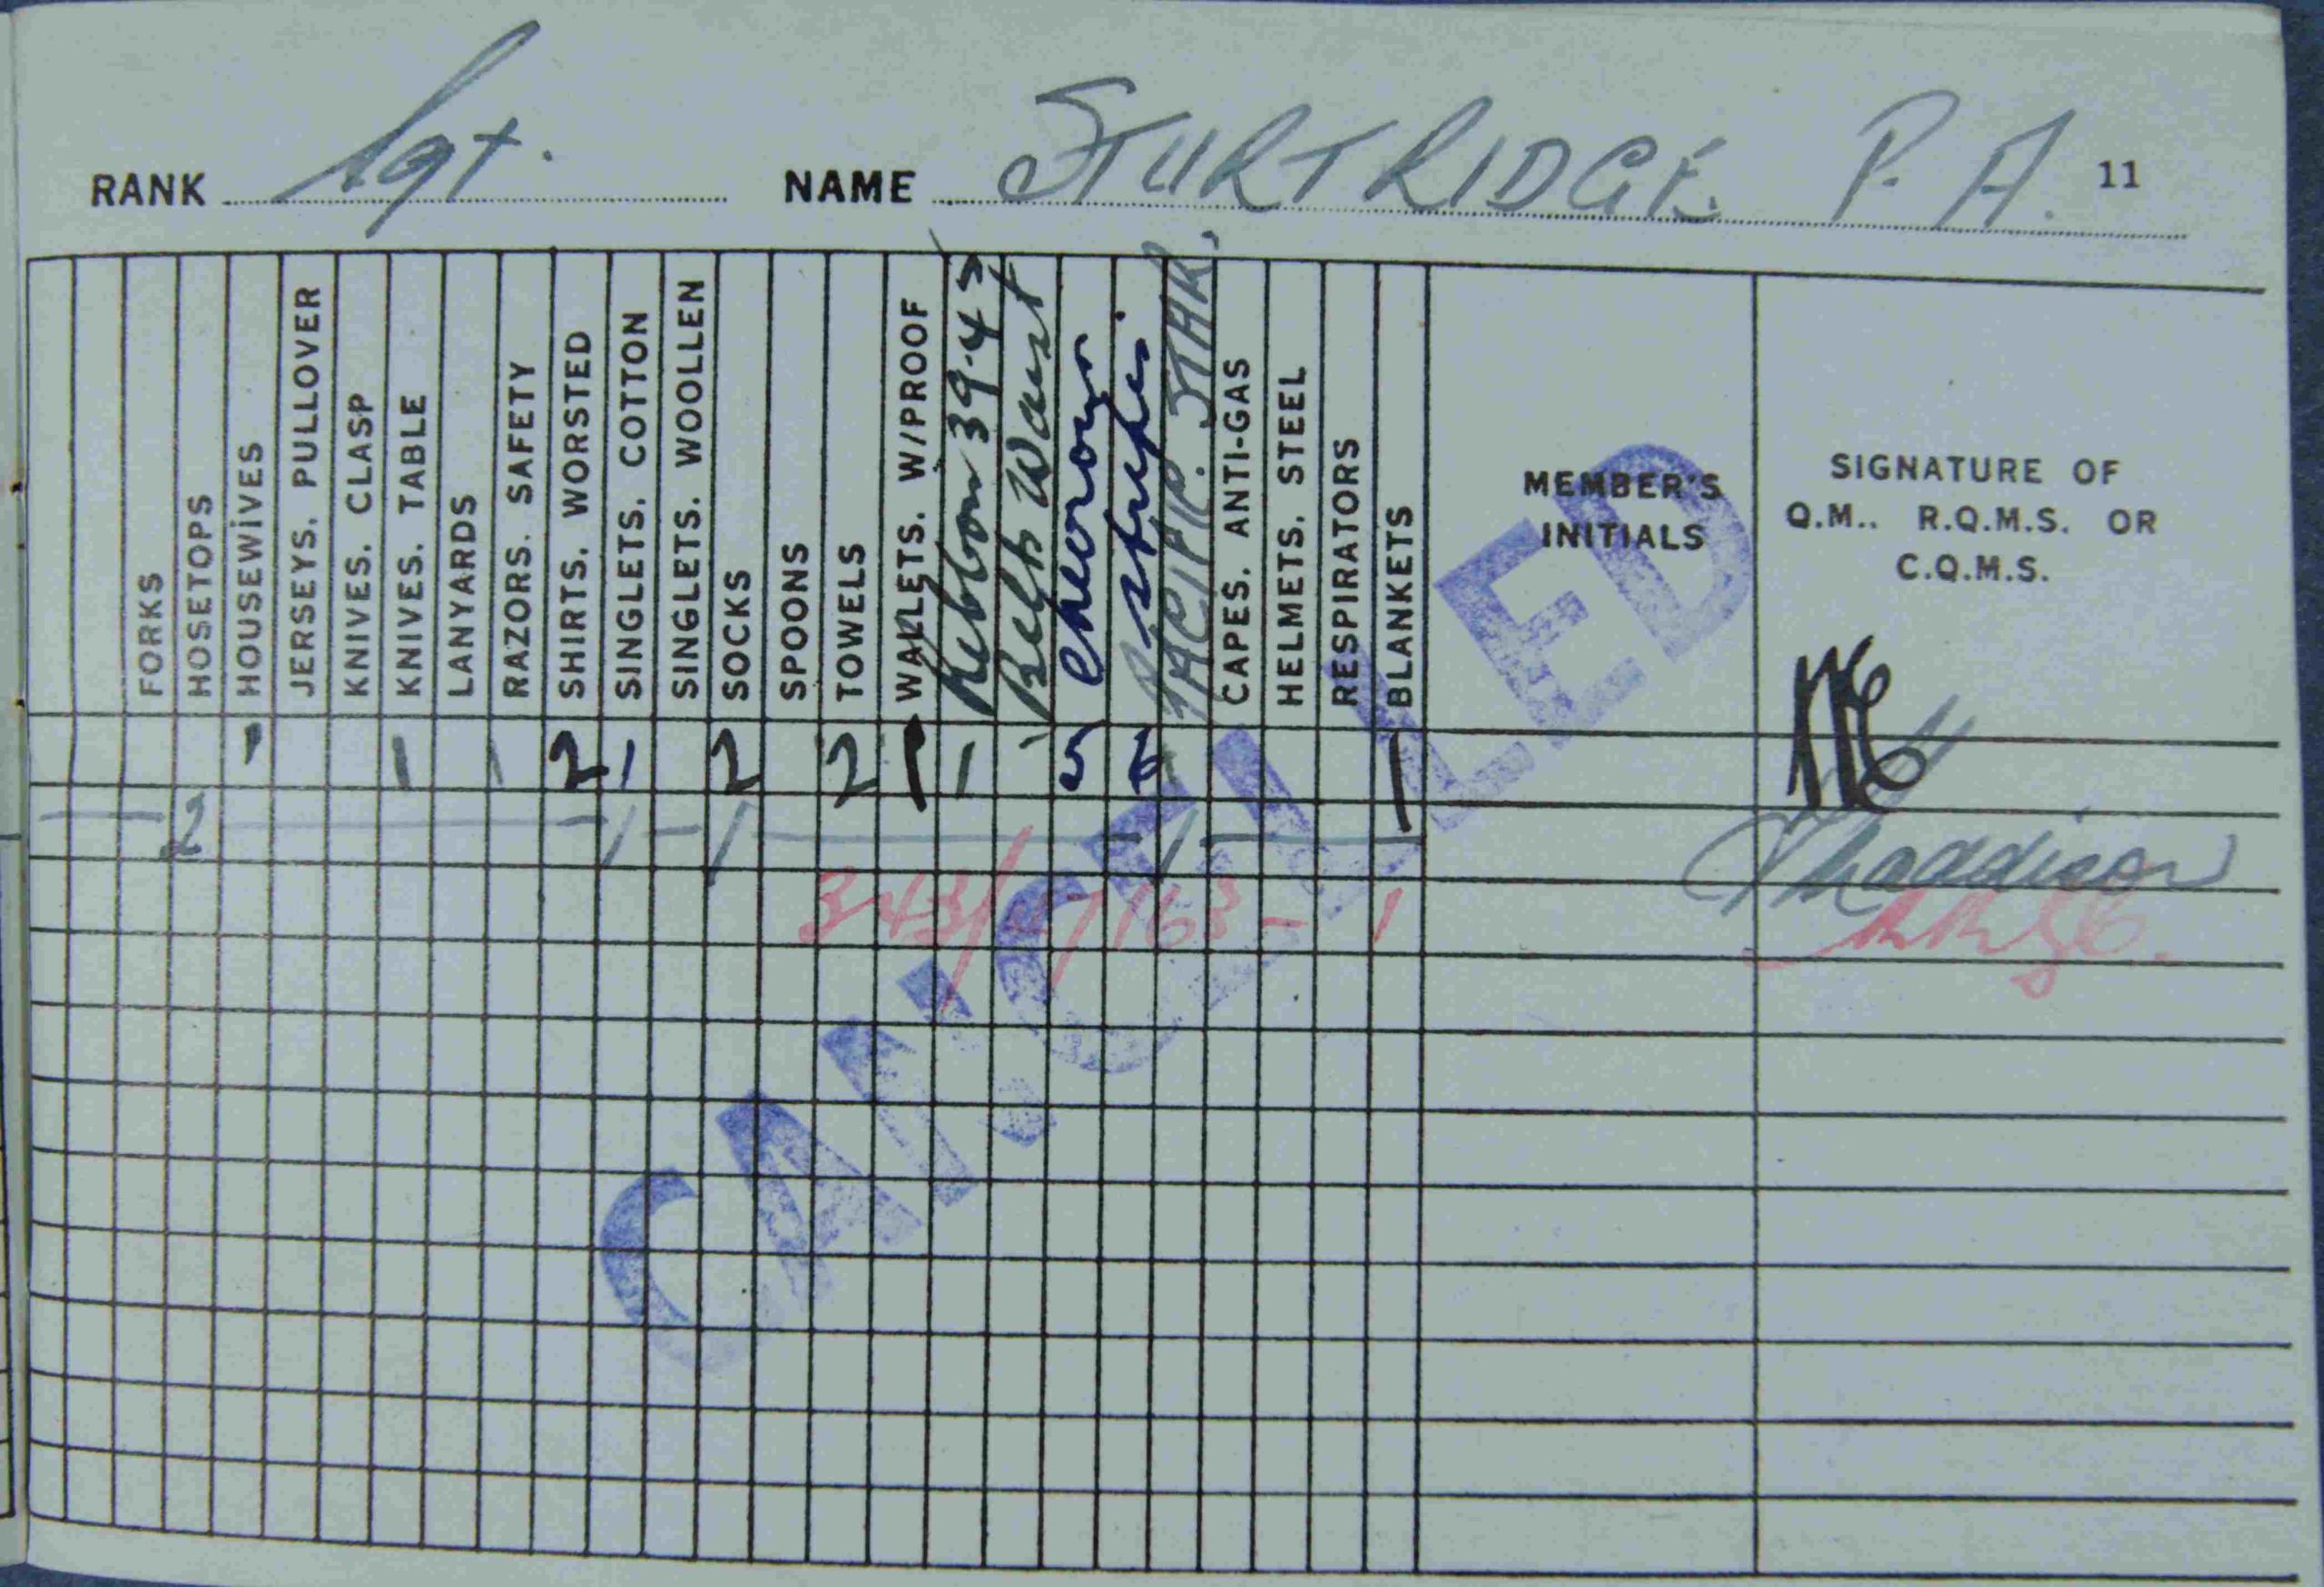 RANK Sgt. NAME STURTRIDGE P. A. 11
FORKS
HOSETOPS
HOUSEWIVES
JERSEYS, PULLOVER
KNIVES, CLASP
KNIVES, TABLE
LANYARDS
RAZORS, SAFETY
SHIRTS, WORSTED
SINGLETS, COTTON
SINGLETS, WOOLLEN
SOCKS
SPOONS
TOWELS
WALLETS, W/PROOF
Ribbon 39-45
Belts Waist
Chevrons
Stripes
PACIFIC STAR.
CAPES, ANTI-GAS
HELMETS, STEEL
RESPIRATORS
BLANKETS
MEMBER'S
INITIALS
SIGNATURE OF
Q.M., R.Q.M.S. OR
C.Q.M.S.
1 1 1 2 1 2 2 1 1 1 5 6 1
2 1 1 1
343/ 7163 - 1
CANCELLED